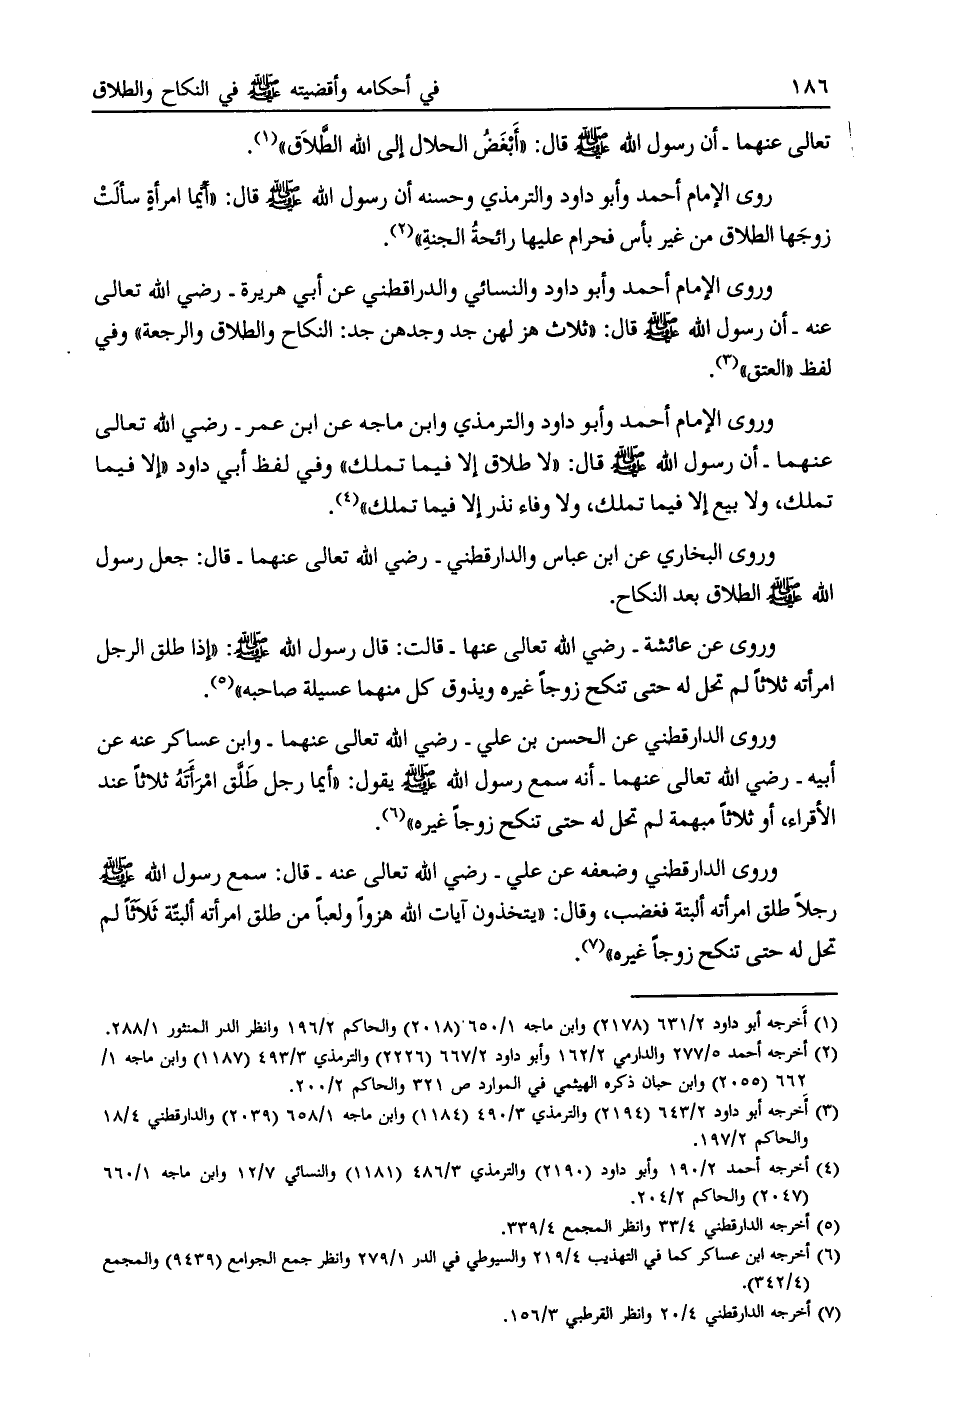 ١٨٦ في أحكامه وأقضيته ﷺ في النكاح والطلاق
تعالى عنهما ـ أن رسول الله ﷺ قال: «أَبْغَضُ الحلال إلى الله الطَّلاَق»(١).
روى الإمام أحمد وأبو داود والترمذي وحسنه أن رسول الله ﷺ قال: «أَيُّما امرأةٍ سألَتْ
زوجَها الطلاق من غير بأس فحرام عليها رائحةُ الجنةِ»(٢).
وروى الإمام أحمد وأبو داود والنسائي والدراقطني عن أبي هريرة ـ رضي الله تعالى
عنه ـ أن رسول الله ﷺ قال: «ثلاث هز لهن جد وجدهن جد: النكاح والطلاق والرجعة» وفي
لفظ «العتق»(٣).
وروى الإمام أحمد وأبو داود والترمذي وابن ماجه عن ابن عمر ـ رضي الله تعالى
عنهما ـ أن رسول الله ﷺ قال: «لا طلاق إلا فيما تملك» وفي لفظ أبي داود «إلا فيما
تملك، ولا بيع إلا فيما تملك، ولا وفاء نذر إلا فيما تملك»(٤).
وروى البخاري عن ابن عباس والدارقطني ـ رضي الله تعالى عنهما ـ قال: جعل رسول
الله ﷺ الطلاق بعد النكاح.
وروى عن عائشة ـ رضي الله تعالى عنها ـ قالت: قال رسول الله ﷺ: «إذا طلق الرجل
امرأته ثلاثاً لم تحل له حتى تنكح زوجاً غيره ويذوق كل منهما عسيلة صاحبه»(٥).
وروى الدارقطني عن الحسن بن علي ـ رضي الله تعالى عنهما ـ وابن عساكر عنه عن
أبيه ـ رضي الله تعالى عنهما ـ أنه سمع رسول الله ﷺ يقول: «أيما رجل طَلَّق امْرَأَتَهُ ثلاثاً عند
الأقراء، أو ثلاثاً مبهمة لم تحل له حتى تنكح زوجاً غيره»(٦).
وروى الدارقطني وضعفه عن علي ـ رضي الله تعالى عنه ـ قال: سمع رسول الله ﷺ
رجلاً طلق امرأته ألبتة فغضب، وقال: «يتخذون آيات الله هزواً ولعباً من طلق امرأته ألبتّة ثَلاَثَاً لم
تحل له حتى تنكح زوجاً غيره»(٧).
(١) أخرجه أبو داود ٦٣١/٢ (٢١٧٨) وابن ماجه ٦٥٠/١ (٢٠١٨) والحاكم ١٩٦/٢ وانظر الدر المنثور ٢٨٨/١.
(٢) أخرجه أحمد ٢٧٧/٥ والدارمي ١٦٢/٢ وأبو داود ٦٦٧/٢ (٢٢٢٦) والترمذي ٤٩٣/٣ (١١٨٧) وابن ماجه ١/
٦٦٢ (٢٠٥٥) وابن حبان ذكره الهيثمي في الموارد ص ٣٢١ والحاكم ٢٠٠/٢.
(٣) أخرجه أبو داود ٦٤٣/٢ (٢١٩٤) والترمذي ٤٩٠/٣ (١١٨٤) وابن ماجه ٦٥٨/١ (٢٠٣٩) والدارقطني ١٨/٤
والحاكم ١٩٧/٢.
(٤) أخرجه أحمد ١٩٠/٢ وأبو داود (٢١٩٠) والترمذي ٤٨٦/٣ (١١٨١) والنسائي ١٢/٧ وابن ماجه ٦٦٠/١
(٢٠٤٧) والحاكم ٢٠٤/٢.
(٥) أخرجه الدارقطني ٣٣/٤ وانظر المجمع ٣٣٩/٤.
(٦) أخرجه ابن عساكر كما في التهذيب ٢١٩/٤ والسيوطي في الدر ٢٧٩/١ وانظر جمع الجوامع (٩٤٣٩) والمجمع
(٣٤٢/٤).
(٧) أخرجه الدارقطني ٢٠/٤ وانظر القرطبي ١٥٦/٣.